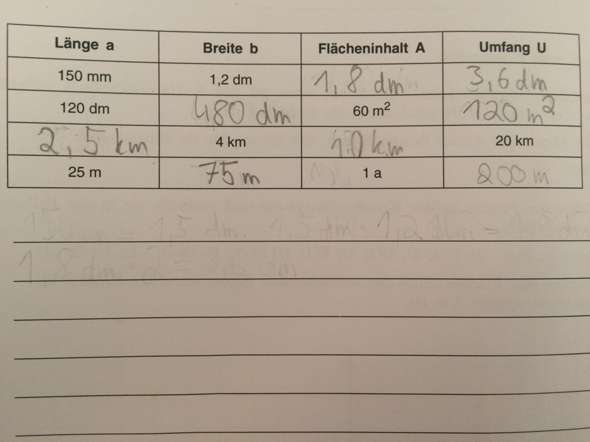 Länge a Breite b Flächeninhalt A Umfang U
150 mm 1,2 dm 1,8 dm 3,6 dm
120 dm 480 dm 60 m² 120 m²
2,5 km 4 km 10 km 20 km
25 m 75 m 1 a 200 m
= 1,5 dm. 1,5 dm · 1,2 dm =
1,8 dm